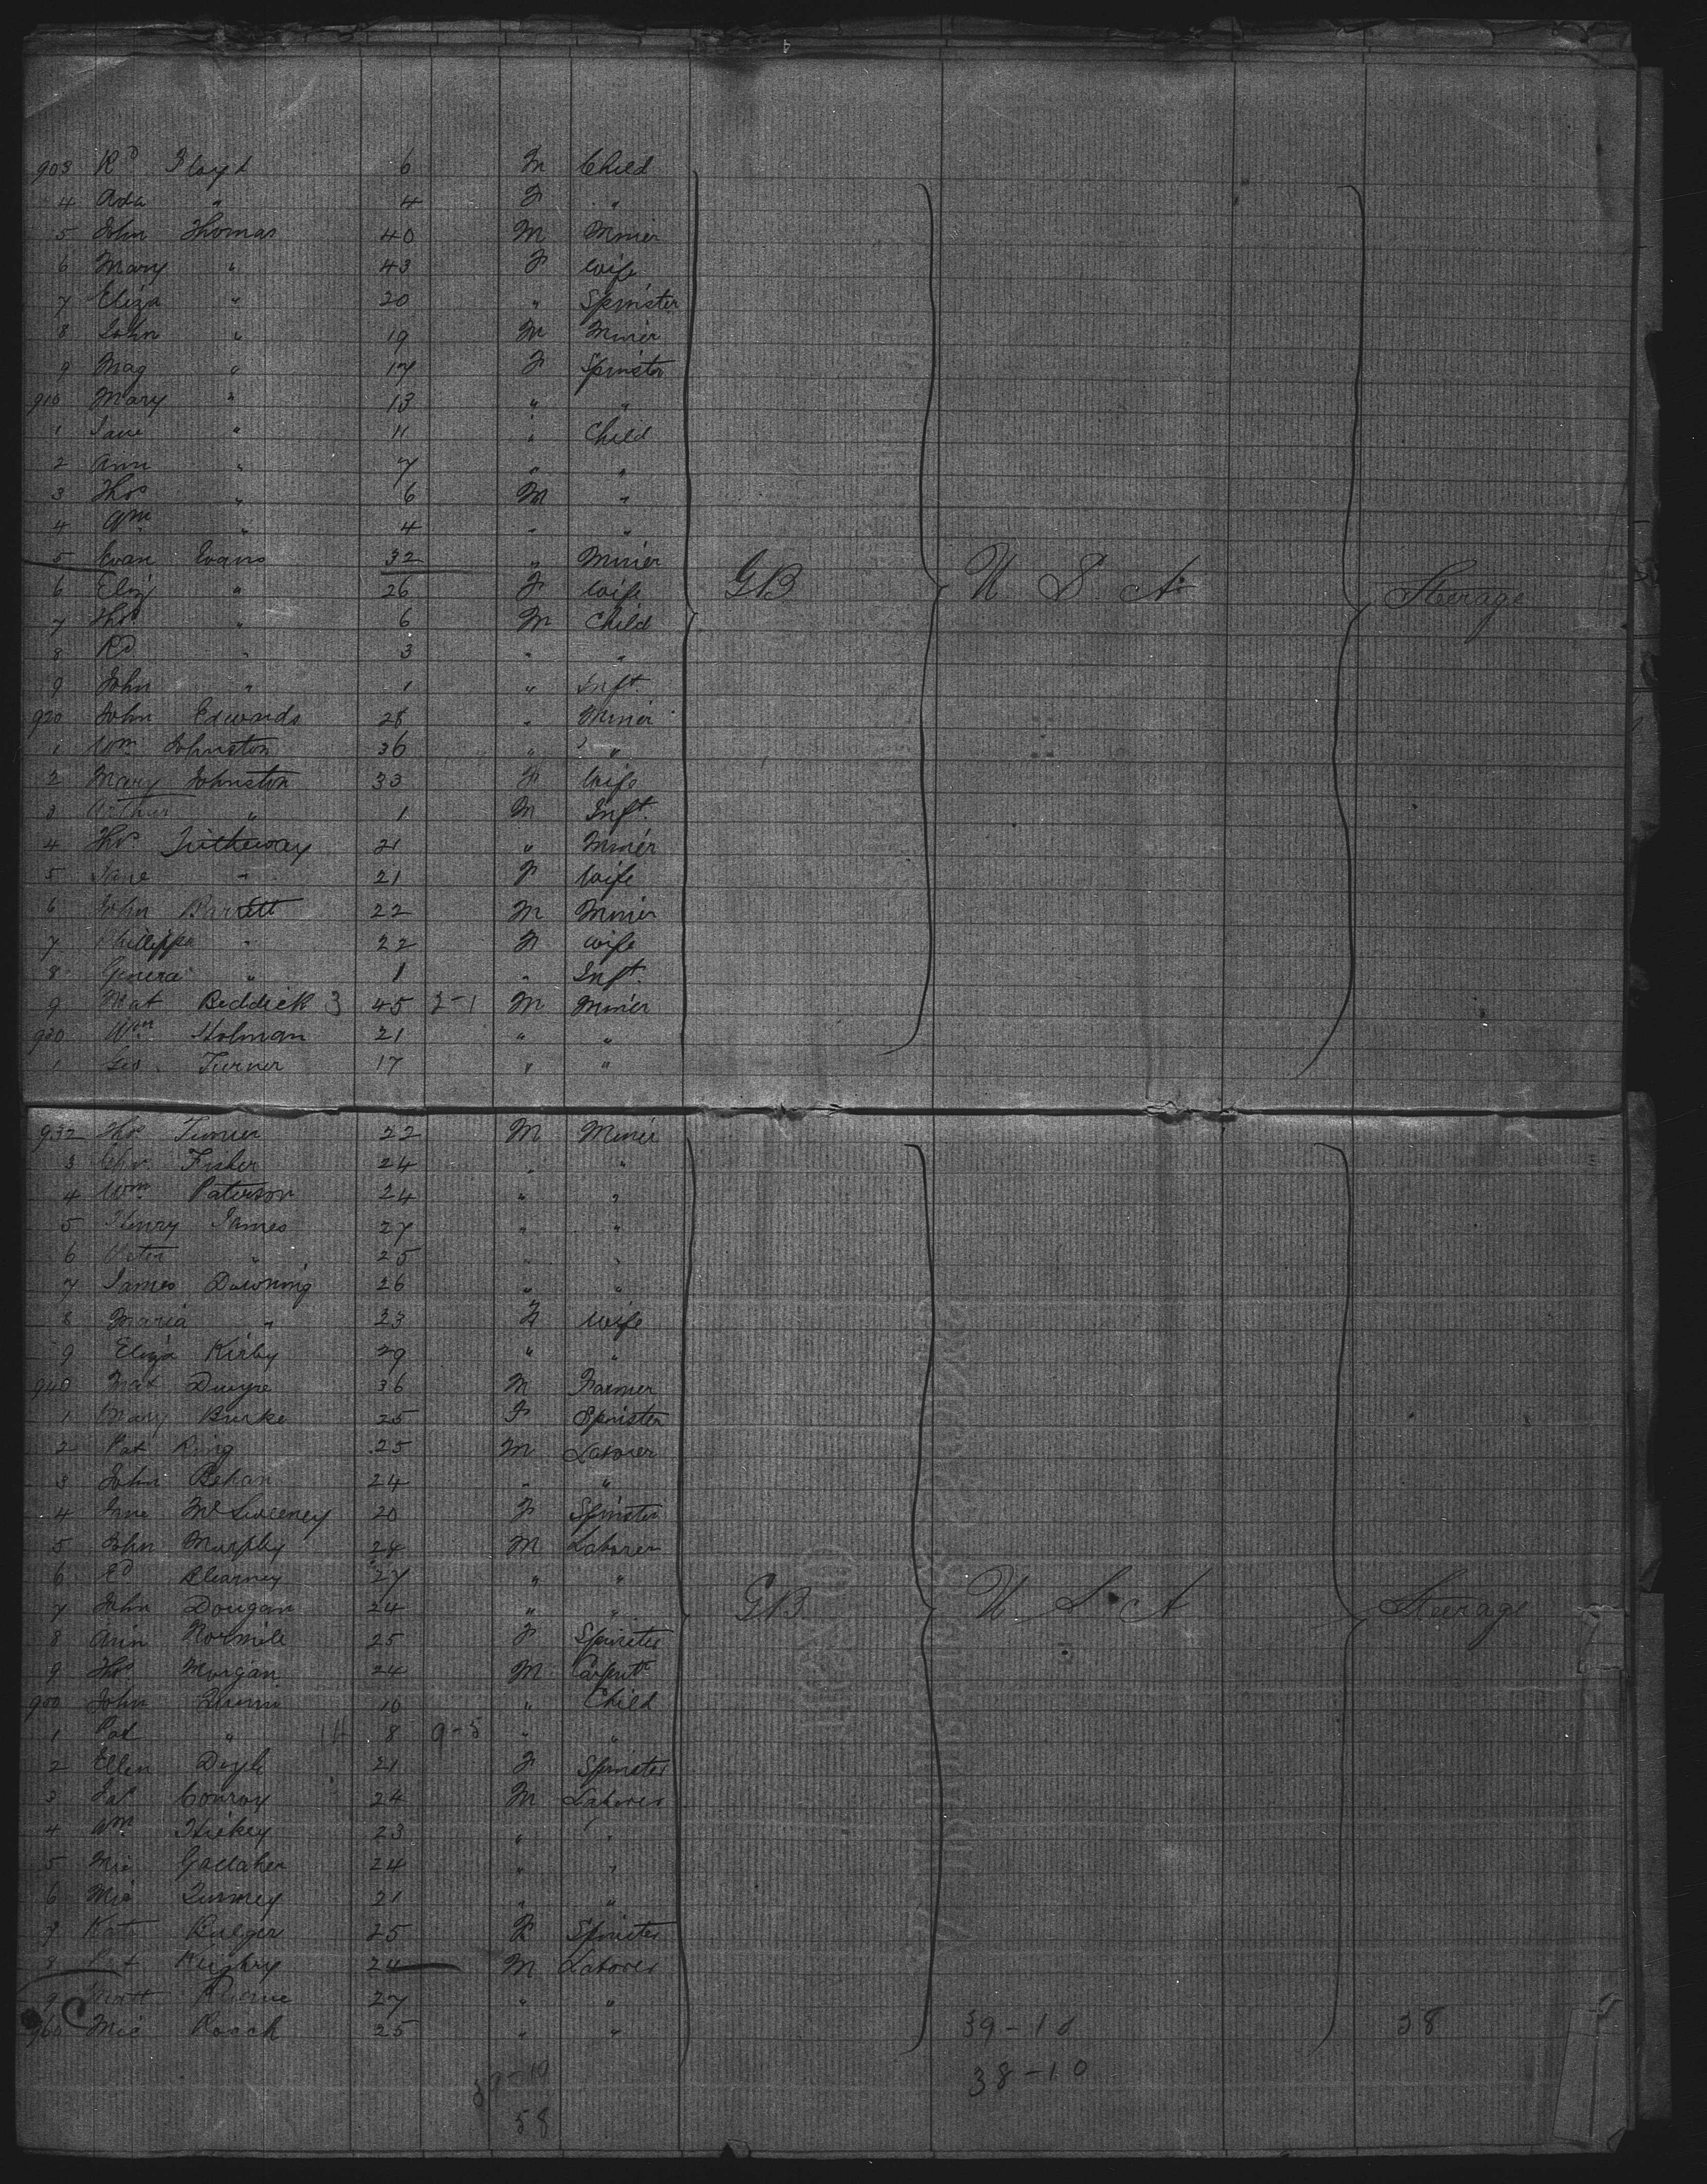 903 Rd Floyd 6 M Child
4 Ada " 4 F "
5 John Thomas 40 M Miner
6 Mary " 43 F Wife
7 Eliza " 20 " Spinster
8 John " 19 M Miner
9 Mag " 17 F Spinster
910 Mary " 13 " "
1 Jane " 11 " Child
2 Ann " 7 " "
3 Thos " 6 M "
4 Wm " 4 " "
5 Evan Evans 32 " Miner
6 Eliz " 26 F Wife GB U S A Steerage
7 Thos " 6 M Child
8 Rd " 3 " "
9 John " 1 " Inft
920 John Edwards 28 " Miner
1 Wm Johnston 36 " "
2 Mary Johnston 33 F Wife
3 Arthur " 1 M Inft.
4 Thos Tretheway 21 " Miner
5 Jane " 21 F Wife
6 John Barrett 22 M Miner
7 Phillippa " 22 F Wife
8 " 1 " Inft.
9 Mat Reddick 3 45 2-1 M Miner
930 Wm Holman 21 " "
1 Geo. Turner 17 " "
932 Thos Turner 22 M Miner
3 Chr. Fisher 24 " "
4 Wm Paterson 24 " "
5 Henry James 27 " "
6 Peter " 25 " "
7 James Downing 26 " "
8 Maria " 23 F Wife
9 Eliza Kirby 29 " "
940 Mat Dwyre 36 M Farmer
1 Mary Burke 25 F Spinster
2 Pat Ring 25 M Laborer
3 John Behan 24 " "
4 McSweeney 20 F Spinster
5 John Murphy 24 M Laborer
6 Ed Kearney 27 " "
7 John Dougan 24 " " GB U S A Steerage
8 Ann Normile 25 F Spinster
9 Thos Morgan 24 M Carpntr
950 John 10 " Child
1 Pat " 14 8 9-5 " "
2 Ellen Doyle 21 F Spinster
3 Jas Conroy 24 M Laborer
4 Wm Hickey 23 " "
5 Mic Gallaher 24 " "
6 Mic 21 " "
7 Kate Bulger 25 F Spinster
8 Pat Keighry 24 M Laborer
9 Matt 27 " "
960 Mic Roach 25 " " 39-10 38
38-10
58